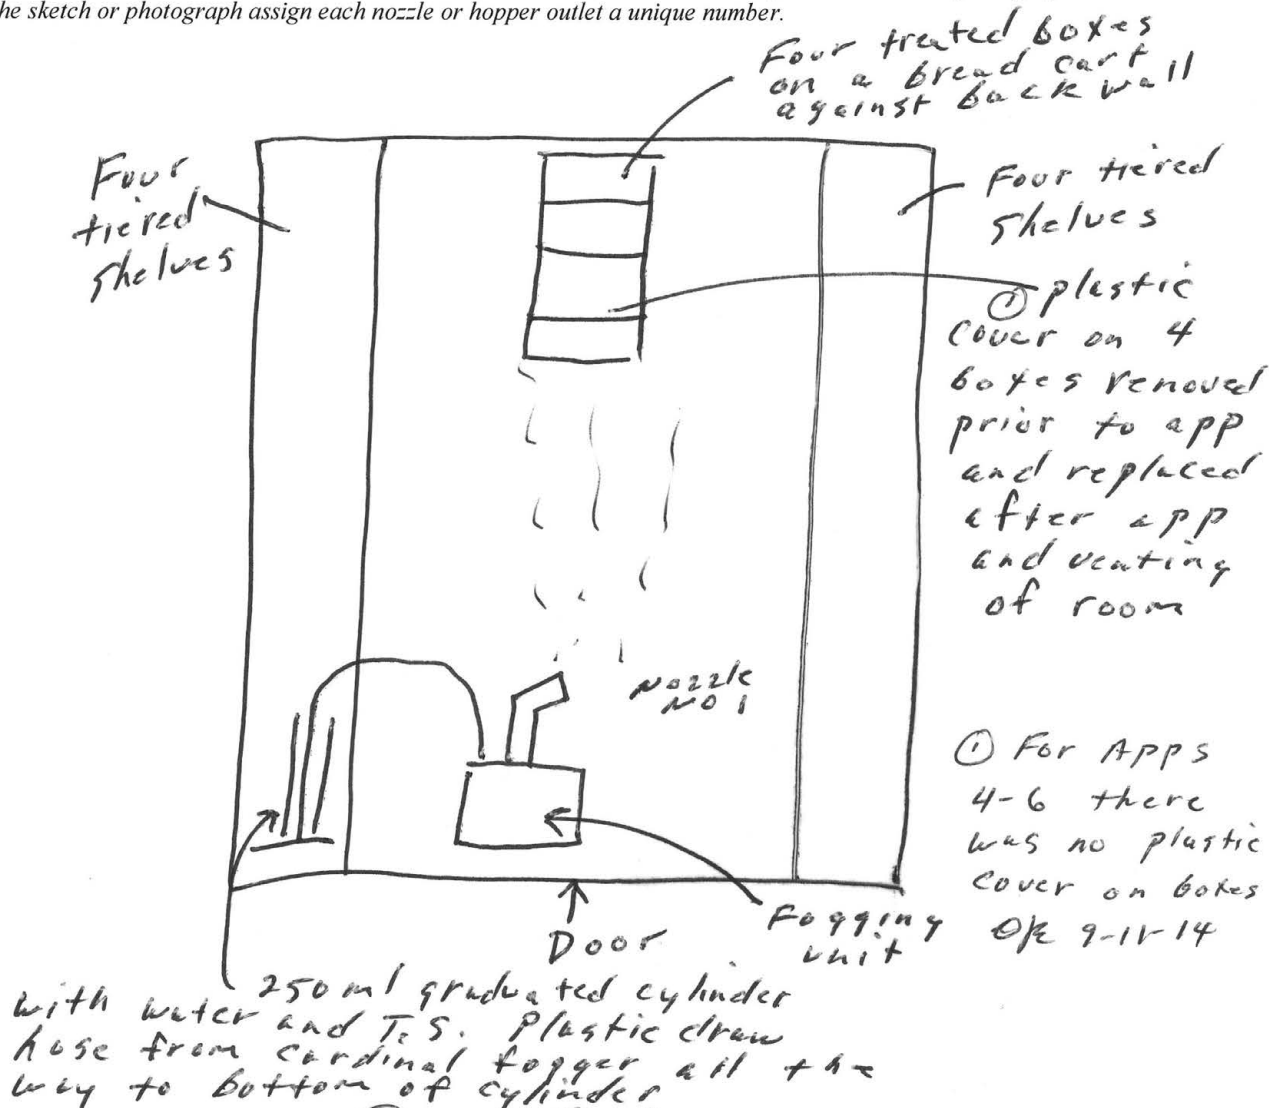 he sketch or photograph assign each nozzle or hopper outlet a unique number.
Four treated boxes
on a bread cart
against back wall
Four
tiered
shelves
Four tiered
shelves
① plastic
cover on 4
boxes removed
prior to app
and replaced
after app
and venting
of room
Nozzle
NO 1
① For APPS
4-6 there
was no plastic
cover on boxes
9-11-14
Fogging
unit
Door
250 ml graduated cylinder
with water and T.S. Plastic draw
hose from cardinal fogger all the
way to bottom of cylinder